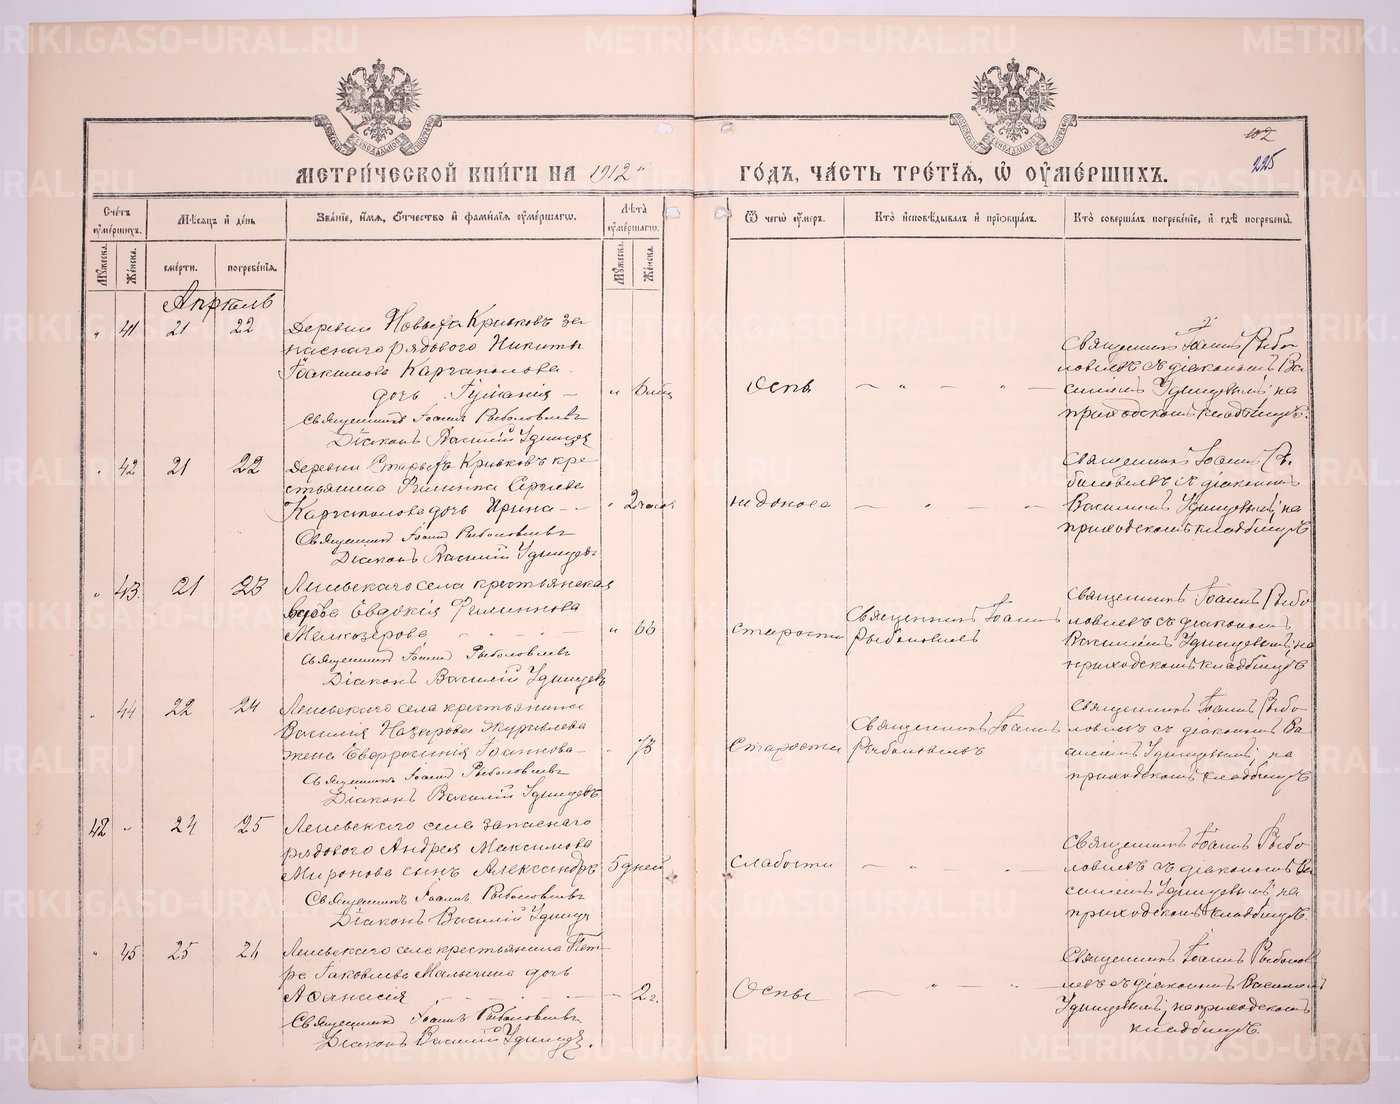 METRIKI.GASO-URAL.RU
МЕТРИ́ЧЕСКОЙ КНИ́ГИ НА 1912
ГО́ДЪ, ЧА́СТЬ ТРЕ́ТІѦ, Ѿ ОУ҆МЕ́РШИХЪ.
102
225
Сче́тъ оу҆ме́ршихъ.
Мꙋ́жеска.
Же́нска.
Мѣ́сѧцъ и҆ де́нь
сме́рти.
погребе́нїѧ.
Зва́нїе, и҆́мѧ, ѻ҆́тчество и҆ фами́лїѧ оу҆ме́ршагѡ.
Лѣ́та оу҆ме́ршагѡ.
Мꙋ́жеска.
Же́нска.
Ѿ чегѡ̀ оу҆́меръ.
Кто̀ и҆сповѣ́дывалъ и҆ прїѻбща́лъ.
Кто̀ соверша́лъ погребе́нїе, и҆ гдѣ̀ погребены̀.
Апрѣль
" 41 21 22
Деревни Новыхъ Кривковъ за-
паснаго рядового Никиты
Іоакимова Каргаполова
дочь
" 6 мѣс
Оспы
Священникъ Іоаннъ Рыболовлевъ
Діаконъ Василій Удинцев
Священникъ Іоаннъ Рыбо
ловлевъ съ діакономъ Ва
силіемъ Удинцевымъ; на
приходскомъ кладбищѣ.
" 42 21 22
Деревни Старыхъ Кривковъ кре-
стьянина Филиппа Сергіева
Каргаполова дочь Ирина
" 2 часов
недоноса
Священникъ Іоаннъ Рыболовлевъ
Діаконъ Василій Удинцевъ
Священникъ Іоаннъ Ры
боловлевъ съ діакономъ
Василіемъ Удинцевымъ; на
приходскомъ кладбищѣ
" 43 21 23
села крестьянская
вдова Евдокія Филиппова
Мелкозерова
" 66
старости
Священникъ Іоаннъ
Рыболовлевъ
Священникъ Іоаннъ Рыболовлевъ
Діаконъ Василій Удинцевъ
Священникъ Іоаннъ Рыбо
ловлевъ съ діакономъ
Василіемъ Удинцевымъ, на
приходскомъ кладбищѣ
" 44 22 24
села крестьянина
Василія Назарова Журавлева
жена Евфросинія Іоаннова
" 73
Старости
Священникъ Іоаннъ
Рыболовлевъ
Священникъ Іоаннъ Рыболовлевъ
Діаконъ Василій Удинцевъ
Священникъ Іоаннъ Рыбо
ловлевъ съ діакономъ Ва
силіемъ Удинцевымъ, на
приходскомъ кладбищѣ
42 " 24 25
села запаснаго
рядового Андрея Максимова
Миронова сынъ Александръ
5 дней
слабости
Священникъ Іоаннъ Рыболовлевъ
Діаконъ Василій Удинцев
Священникъ Іоаннъ Рыбо
ловлевъ съ діакономъ Ва
силіемъ Удинцевымъ, на
приходскомъ кладбищѣ
" 45 25 26
села крестьянина Пет-
ра Іаковлева Малычева дочь
Аѳанасія
" 2 г.
Оспы
Священникъ Іоаннъ Рыболовлевъ
Діаконъ Василій Удинцев.
Священникъ Іоаннъ Рыболов
левъ съ діакономъ Василіемъ
Удинцевымъ; на приходскомъ
кладбищѣ.